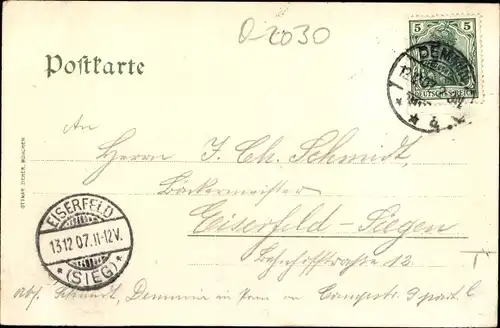 O 2030
Postkarte
5 5
DEUTSCHES REICH
DEMMIN
12.
4
An
Herrn J. Ch. Schmidt,
Bäckermeister
Eiserfeld-Siegen
Bahnhofstraße 12
T
EISERFELD
13.12 07.11-12V.
* (SIEG) *
OTTMAR ZIEHER, MÜNCHEN
abs. Schmidt, Demmin in Pom 9 part